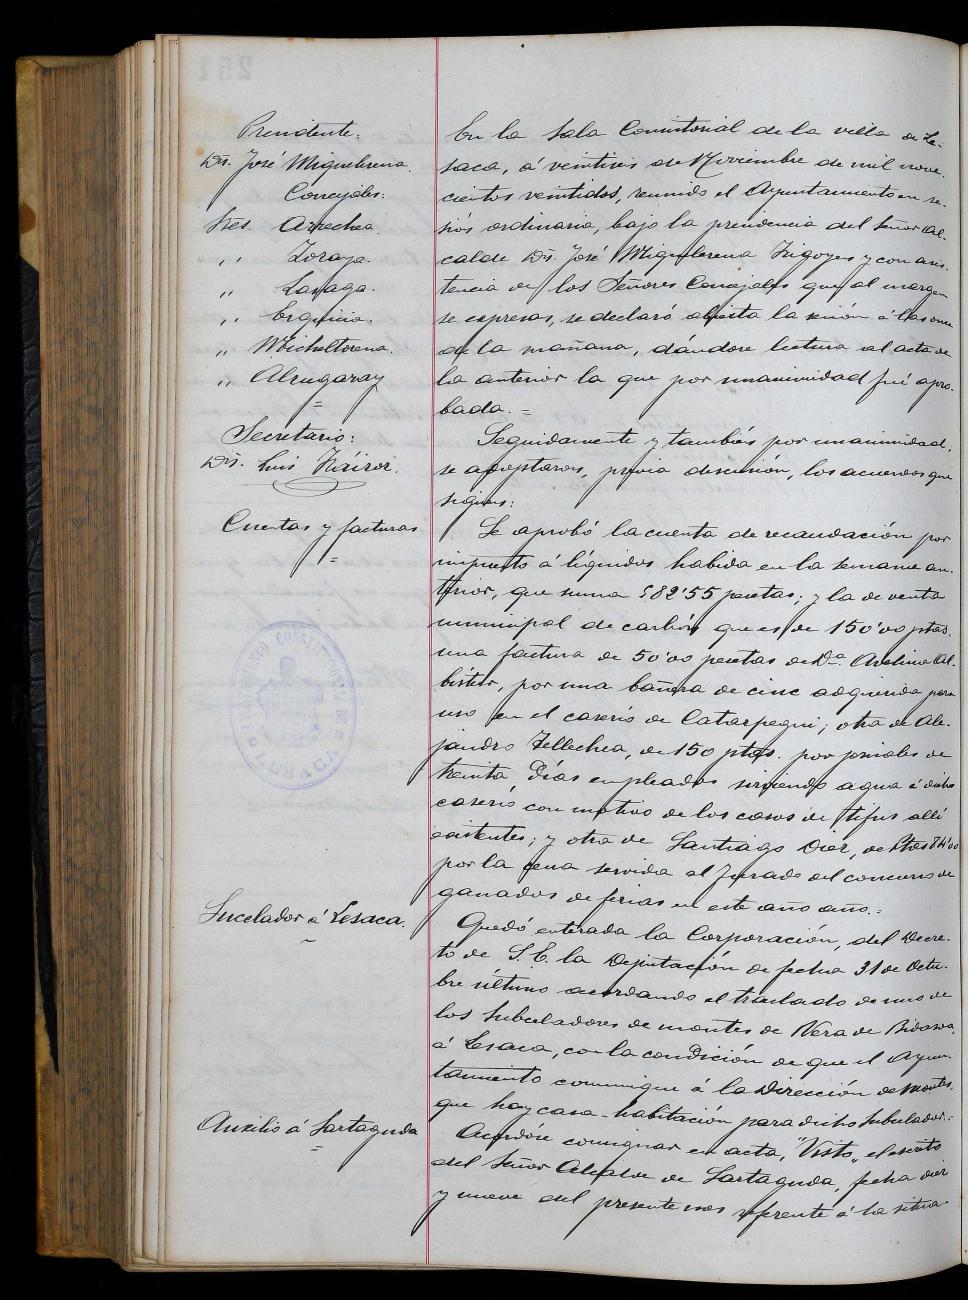 Presidente:
Dn. José Miguelerena.
Concejales:
Sres. Arrechea.
,, Zoraya.
,, Lasaga.
,, Erquicia.
,, Micheltorena.
,, Alzugaray
=
Secretario:
Dn. Luis Iráizoz.
Cuentas y facturas
=
Sucelador á Lesaca.
Auxilio á Sartaguda
=
En la Sala Consistorial de la villa de Le-
saca, á veintiseis de Noviembre de mil nove-
cientos veintidos, reunido el Ayuntamiento en se-
sión ordinaria, bajo la presidencia del Señor Al-
calde Dn. José Miguelerena Irigoyen y con asis-
tencia de los Señores Concejales que al margen
se expresan, se declaró abierta la sesión á las once
de la mañana, dándose lectura al acta de
la anterior la que por unanimidad fué apro-
bada.=
Seguidamente y también por unanimidad,
se adoptaron, previa discusión, los acuerdos que
siguen:
Se aprobó la cuenta de recaudación por
impuesto á líquidos habida en la semana an-
terior, que suma 582'55 pesetas; y la de venta
municipal de carbón que es de 150'00 ptas.
una factura de 50'00 pesetas de Da. Avelina Al-
bistur, por una bañera de cinc adquirida para
uso en el caserío de Catarpegui; otra de Ale-
jandro Tellechea, de 150 ptas. por jornales de
treinta días empleados sirviendo agua á dicho
caserío con motivo de los casos de tifus allí
existentes; y otra de Santiago Oier, de Ptas 84'00
por la cena servida al Jurado del concurso de
ganados de ferias en este año año.=
Quedó enterada la Corporación, del Decre-
to de S.E. la Diputación de fecha 31 de Octu-
bre último acordando el traslado de uno de
los Subceladores de montes de Vera de Bidasoa,
á Lesaca, con la condición de que el Ayun-
tamiento comunique á la Dirección de Montes,
que hay casa-habitación para dicho Subcelador.=
Acordóse consignar en acta, "Visto" el escrito
del Señor Alcalde de Sartaguda, fecha diez
y nueve del presente mes referente á la situa-
AYUNTAMIENTO CONSTITUCIONAL
LESACA